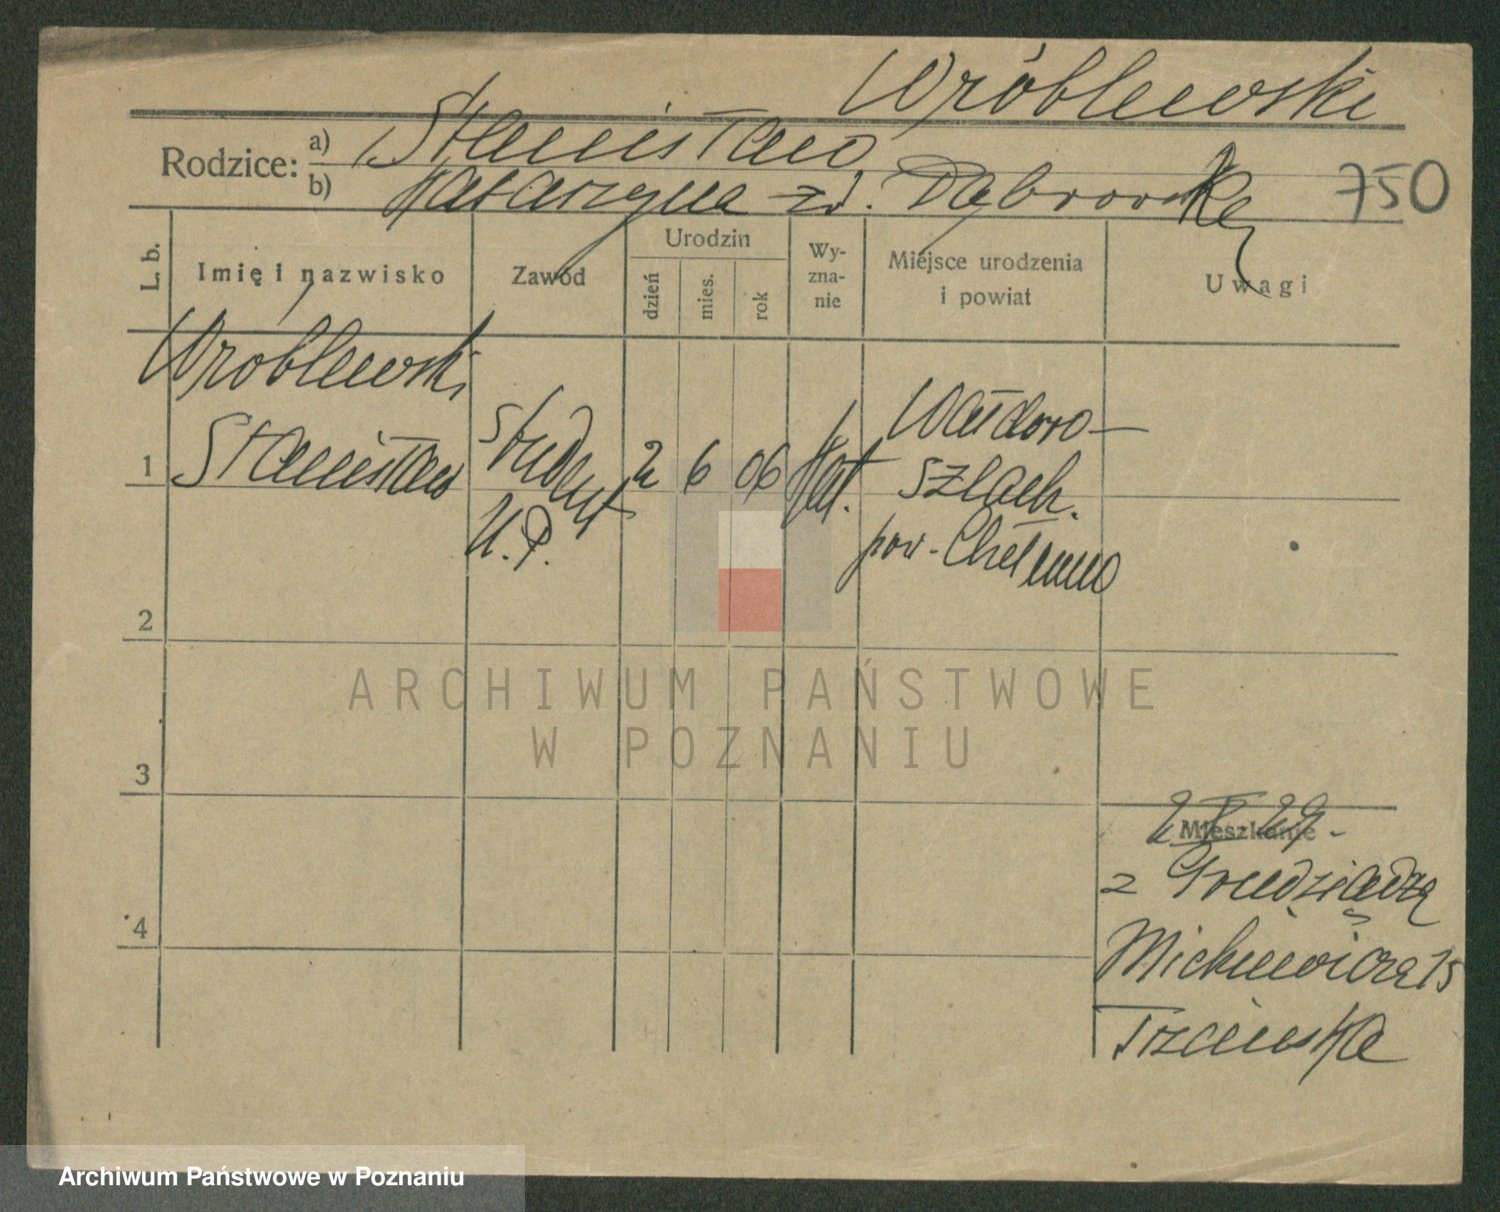 Wróblewski
Rodzice: a) Stanisław
b) Katarzyna zd. Dąbrowska
750
L. b.
Imię i nazwisko
Zawód
Urodzin
dzień
mies.
rok
Wy-
zna-
nie
Miejsce urodzenia
i powiat
Uwagi
Wróblewski
1 Stanisław
student
U. P.
2 6 06
Kat.
Wałdowo
Szlach.
pow. Chełmno
2
3
4
Mieszkanie
z Grudziądza
Mickiewicza 15
ARCHIWUM PAŃSTWOWE
W POZNANIU
Archiwum Państwowe w Poznaniu